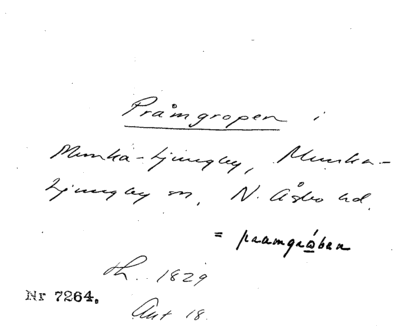 Pråmgropen i
Munka-Ljungby, Munka-
Ljungby sn, N. Åsbo hd.
= pramgråban
th. 1829
Nr 7264.
Ant 18.